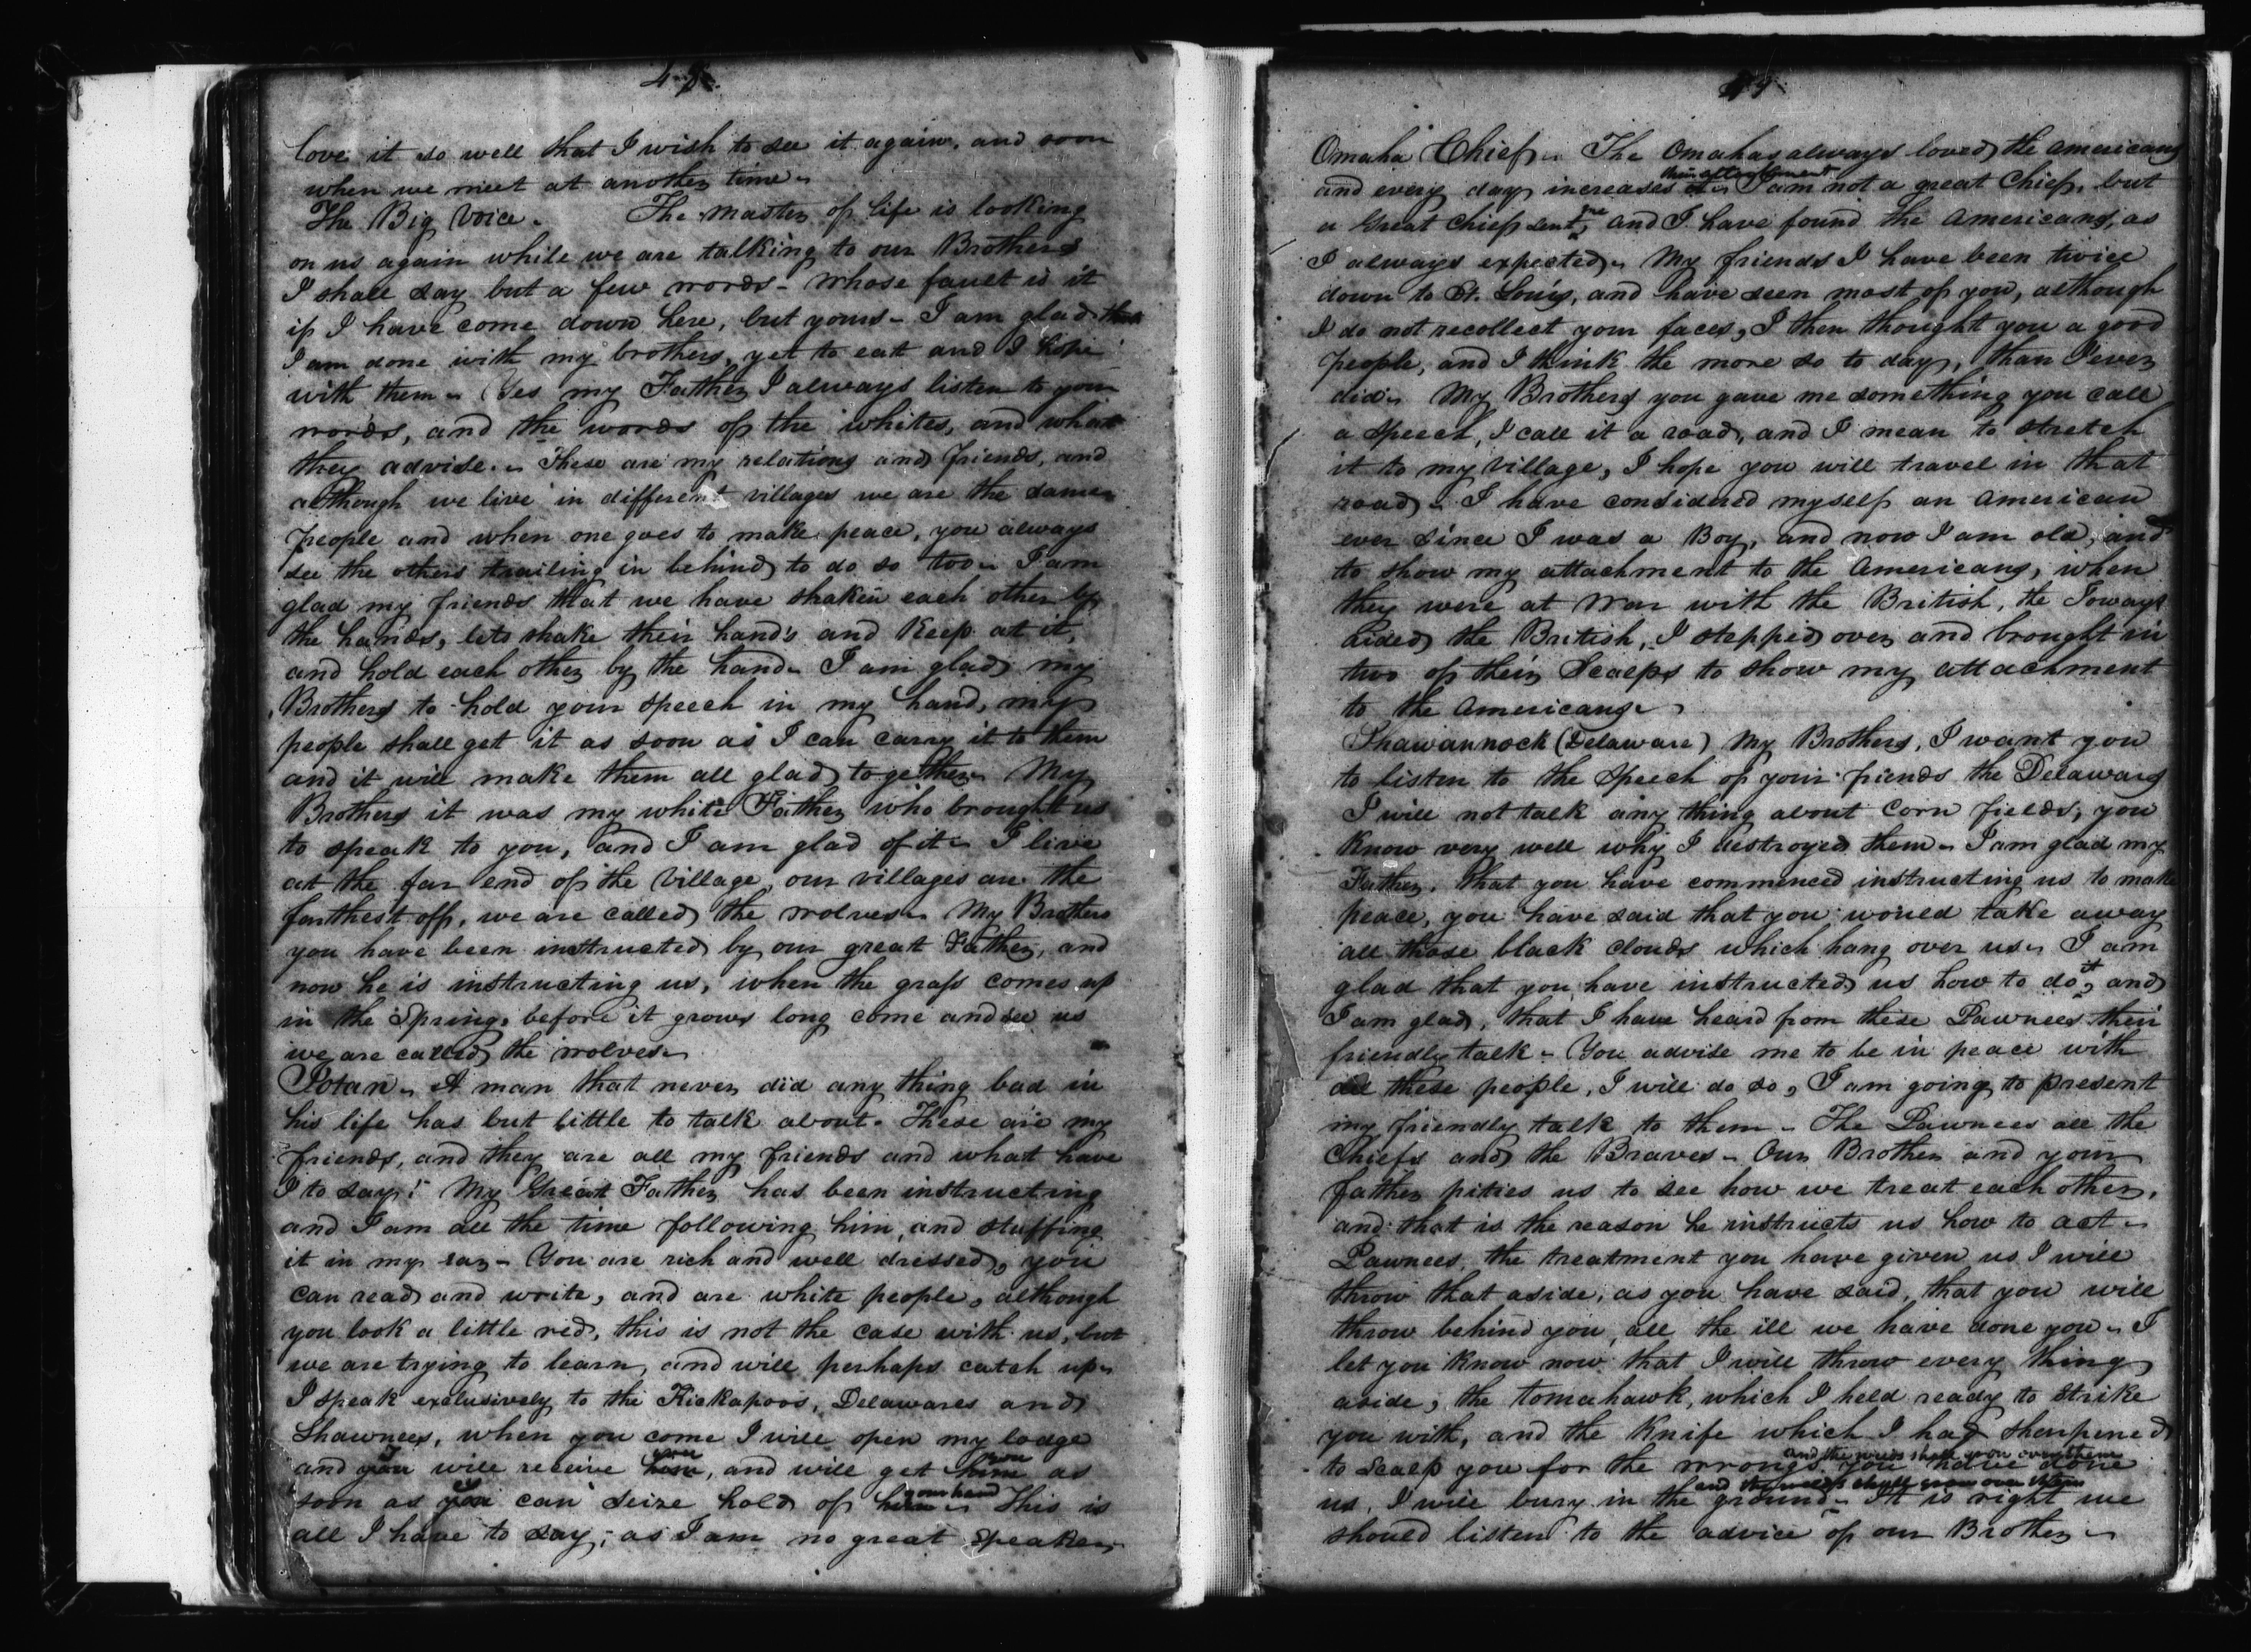 48.
love it so well that I wish to see it again, and soon
when we meet at another time.
The Big Voice. The Master of life is looking
on us again while we are talking to our Brothers
I shall say but a few words - Whose fault is it
if I have come down here, but yours - I am glad that
I am done with my brothers, yet to eat and I hope
with them - Yes my Father I always listen to your
words, and the words of the whites, and what
they advise. - These are my relations and friends, and
although we live in different villages we are the same
people and when one goes to make peace, you always
see the others trailing in behind to do so too - I am
glad my friends that we have shaken each other by
the hands, lets shake their hand's and Keep at it,
and hold each other by the hand - I am glad my
Brothers to hold your speech in my hand, my
people shall get it as soon as I can carry it to them
and it will make them all glad together - My
Brothers it was my white Father who brought us
to speak to you, and I am glad of it - I live
at the far end of the Village, our villages are the
farthest off, we are called the wolves - My Brothers
you have been instructed by our great Father, and
now he is instructing us, when the grass comes up
in the Spring, before it grows long come and see us
we are called the wolves -
Iotan - A man that never did any thing bad in
his life has but little to talk about. These are my
friends, and they are all my friends and what have
I to say! My Great Father has been instructing
and I am all the time following him, and stuffing
it in my ear - You are rich and well dressed, you
can read and write, and are white people, although
you look a little red, this is not the case with us, but
we are trying to learn, and will perhaps catch up -
I speak exclusively to the Kickapoos, Delawares and
Shawnees, when you come I will open my lodge
you you
and I will receive him, and will get him as
your hand
soon as I can seize hold of him - This is
all I have to say, as I am no great Speaker -
Omaha Chief - The Omahas always loved the Americans
their attachment
and every day increases it - I am not a great Chief, but
me
a Great Chief sent, and I have found the Americans, as
I always expected - My friends I have been twice
down to St. Louis, and have seen most of you, although
I do not recollect your faces, I then thought you a good
people, and I think the more so to day, than I ever
did - My Brothers you gave me something you call
a speech, I call it a road, and I mean to stretch
it to my Village, I hope you will travel in that
road - I have considered myself an American
ever since I was a Boy, and now I am old, and
to show my attachment to the Americans, when
they were at War with the British, the Ioways
aided the British, I stepped over and brought in
two of their Scalps to show my attachment
to the Americans -
Shawannock (Delaware) My Brothers, I want you
to listen to the speech of your friends the Delawares
I will not talk any thing about Corn fields, you
know very well why I destroyed them - I am glad my
Father, that you have commenced instructing us to make
peace, you have said that you would take away
all those black clouds which hang over us - I am
it
glad that you have instructed us how to do, and
I am glad, that I have heard from these Pawnees their
friendly talk - You advise me to be in peace with
all these people, I will do so, I am going to present
my friendly talk to them - The Pawnees all the
Chiefs and the Braves - Our Brother and your
father pities us to see how we treat each other,
and that is the reason he instructs us how to act -
Pawnees, the treatment you have given us I will
throw that aside, as you have said, that you will
throw behind you, all the ill we have done you - I
let you know now that I will throw every thing
aside, the tomahawk, which I held ready to strike
you with, and the Knife which I had sharpened
and the weeds shall grow over them
to Scalp you for the wrongs you have done
and the weeds shall grow over them
us, I will bury in the ground - It is right we
should listen to the advice of our Brother -